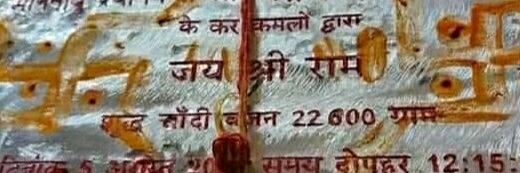 के कर कमलों द्वारा
जय श्री राम
शुद्ध चाँदी वजन 22600 ग्राम
दिनांक 5 अगस्त 20 समय दोपहर 12:15: